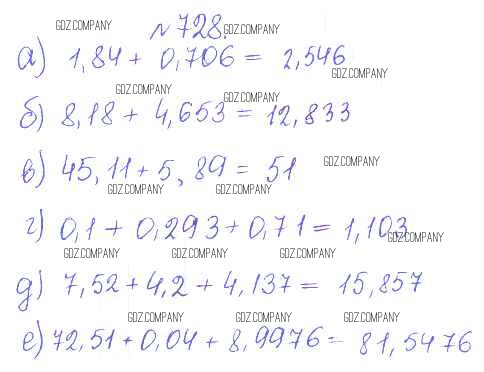 № 728.
GDZ.COMPANY GDZ.COMPANY
а) 1,84 + 0,706 = 2,546
GDZ.COMPANY
GDZ.COMPANY GDZ.COMPANY
б) 8,18 + 4,653 = 12,833
в) 45,11 + 5,89 = 51
GDZ.COMPANY
GDZ.COMPANY GDZ.COMPANY
г) 0,1 + 0,293 + 0,71 = 1,103
GDZ.COMPANY
GDZ.COMPANY GDZ.COMPANY GDZ.COMPANY
д) 7,52 + 4,2 + 4,137 = 15,857
GDZ.COMPANY GDZ.COMPANY GDZ.COMPANY
е) 72,51 + 0,04 + 8,9976 = 81,5476